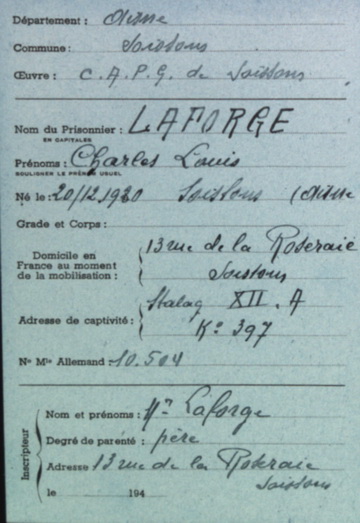 Département : Aisne
Commune : Soissons
Œuvre : C.A.P.G. de Soissons
Nom du Prisonnier : LAFORGE
EN CAPITALES
Prénoms : Charles Louis
SOULIGNER LE PRÉNOM USUEL
Né le : 20/12/1920 Soissons (Aisne
Grade et Corps :
Domicile en
France au moment
de la mobilisation :
13 rue de la Roseraie
Soissons
Adresse de captivité :
Stalag XII. A
Ko 397
No Mle Allemand : 10.504
Inscripteur
Nom et prénoms : Mr Laforge
Degré de parenté : père
Adresse 13 rue de la Roseraie
Soissons
le 194